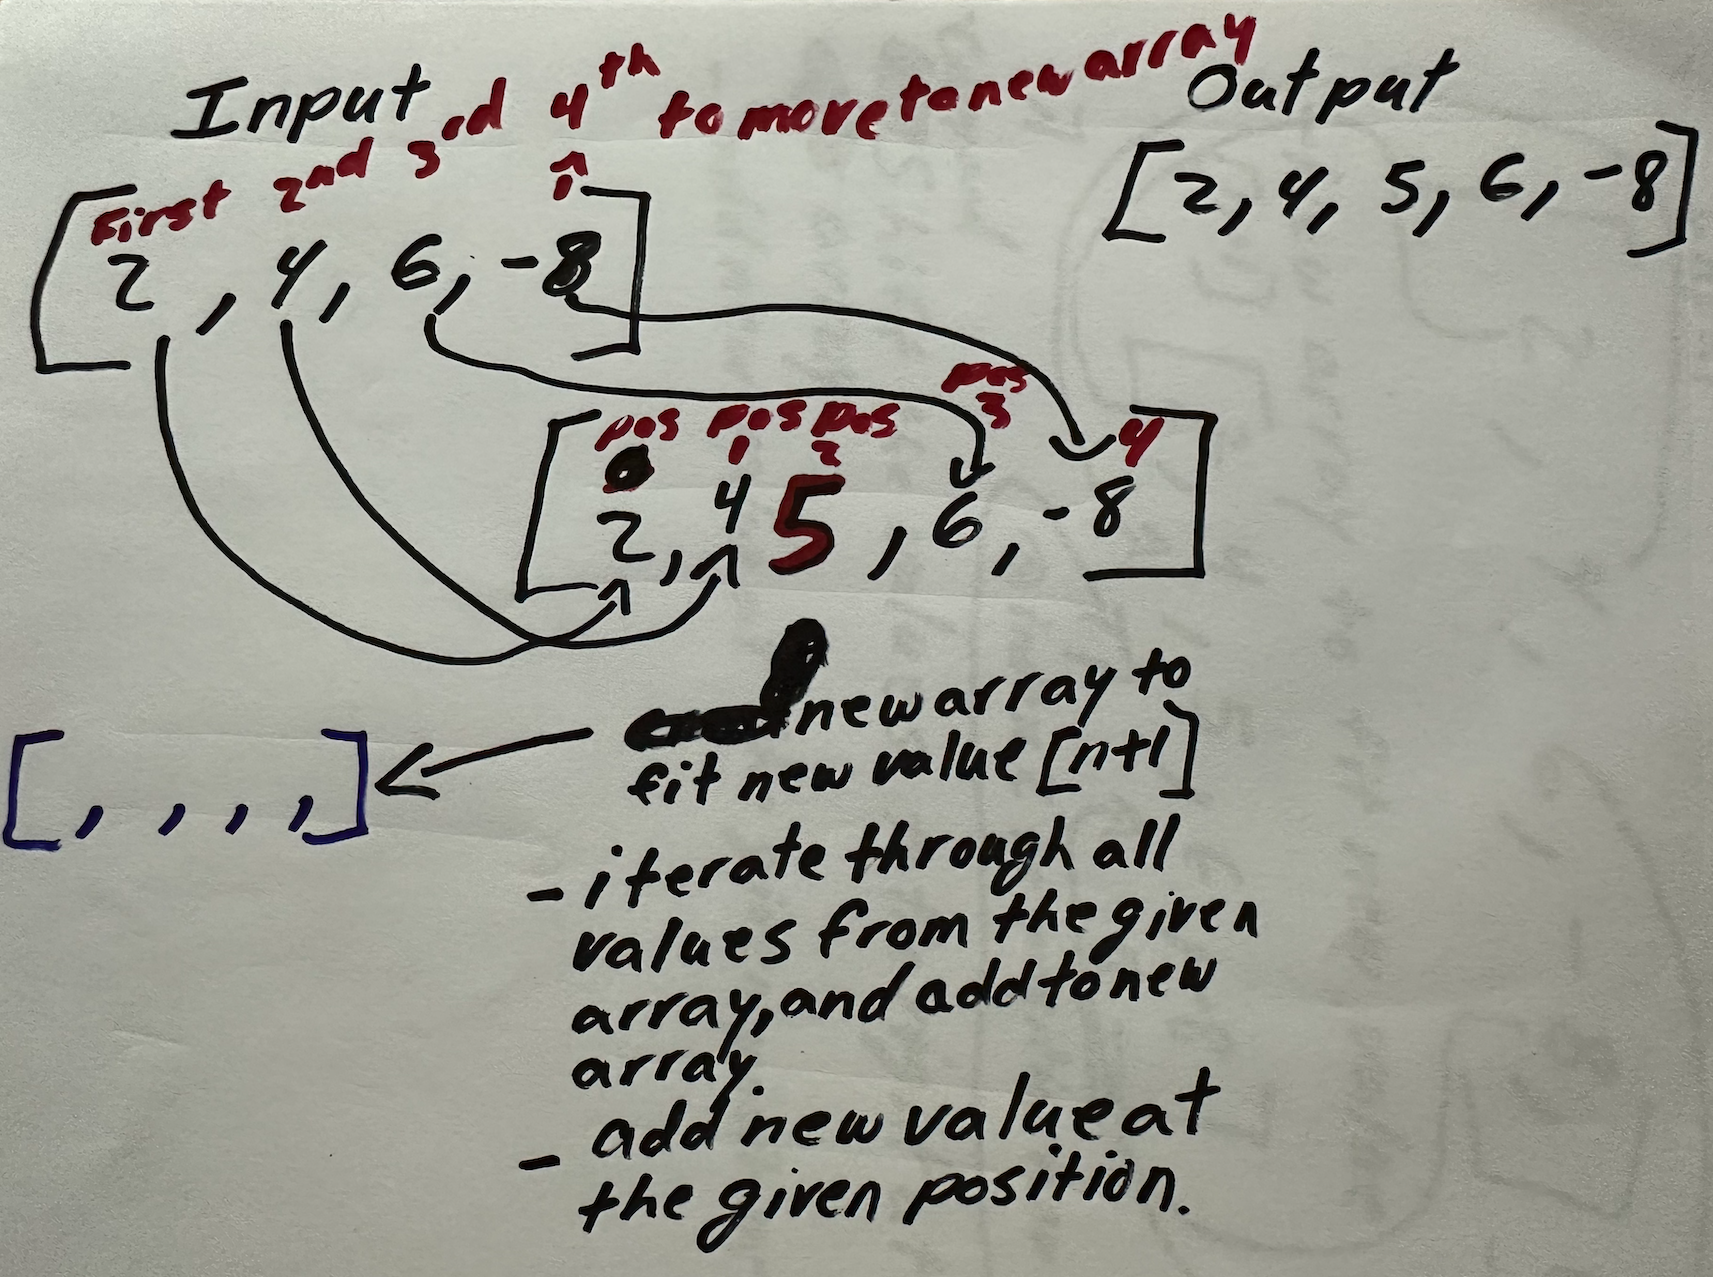 Input
First 2nd 3rd 4th to move to new array
Output
[2, 4, 5, 6, -8]
[2, 4, 6, -8]
pos 0 pos 1 pos 2 pos 3 4
[2, 4 5, 6, -8]
new array to
fit new value [n+1]
[ , , , , ]
- iterate through all
values from the given
array, and add to new
array.
- add new value at
the given position.